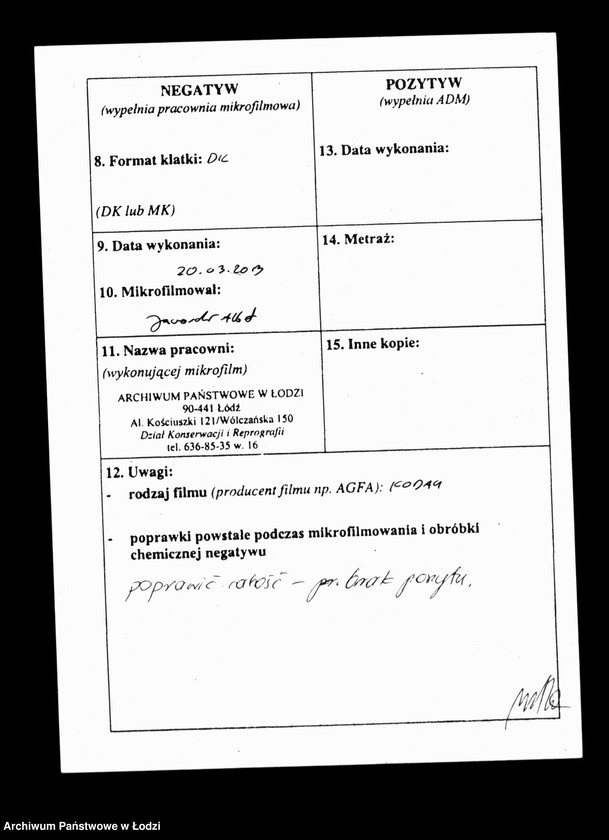 NEGATYW
(wypełnia pracownia mikrofilmowa)
8. Format klatki: DK
(DK lub MK)
9. Data wykonania:
20.03.2013
10. Mikrofilmował:
11. Nazwa pracowni:
(wykonującej mikrofilm)
ARCHIWUM PAŃSTWOWE W ŁODZI
90-441 Łódź
Al. Kościuszki 121/Wólczańska 150
Dział Konserwacji i Reprografii
tel. 636-85-35 w. 16
POZYTYW
(wypełnia ADM)
13. Data wykonania:
14. Metraż:
15. Inne kopie:
12. Uwagi:
- rodzaj filmu (producent filmu np. AGFA): KODAK
- poprawki powstałe podczas mikrofilmowania i obróbki
chemicznej negatywu
poprawić całość – brak
Archiwum Państwowe w Łodzi